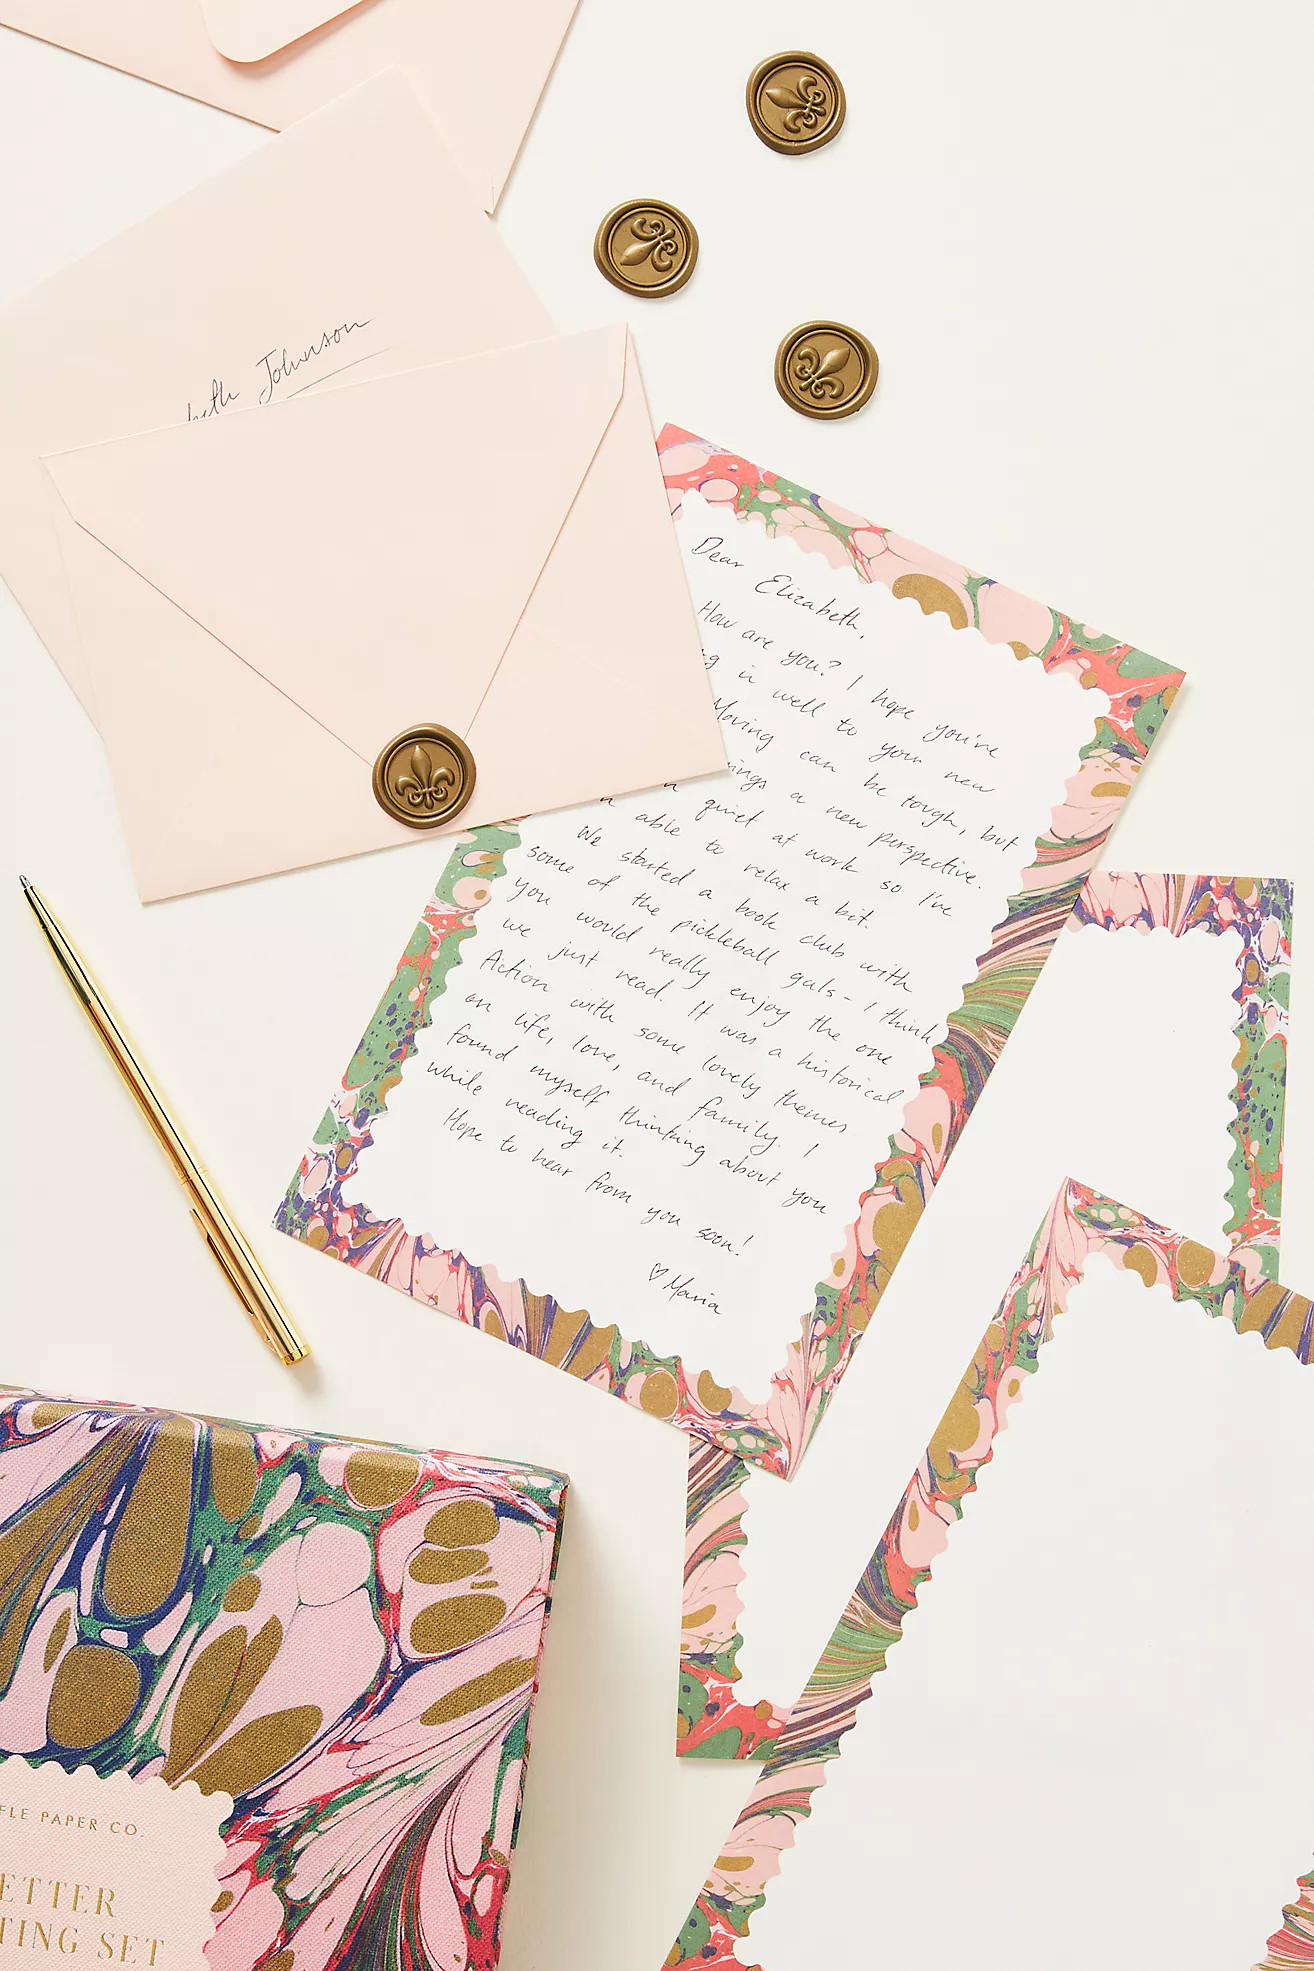 beth Johnson
Dear Elizabeth,
How are you? I hope you're
in well to your new
Moving can be tough, but
a new perspective.
quiet at work so I've
able to relax a bit.
We started a book club with
some of the pickleball gals - I think
you would really enjoy the one
we just read. It was a historical
Action with some lovely themes
on life, love, and family. I
found myself thinking about you
while reading it.
Hope to hear from you soon!
♡ Maria
FLE PAPER CO.
ETTER
TING SET